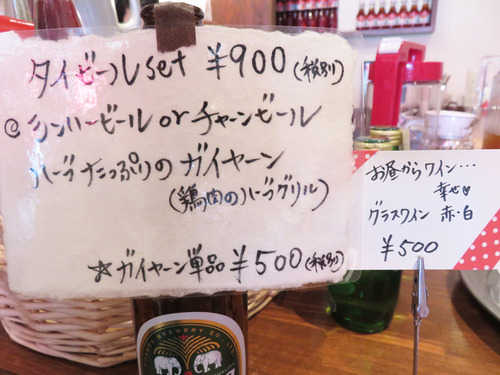 タイビールset ¥900(税別)
◎シンハービール or チャーンビール
ハーブたっぷりのガイヤーン
(鶏肉のハーブグリル)
☆ガイヤーン単品 ¥500(税別)
お昼からワイン…
幸せ♥
グラスワイン 赤・白
¥500
BREWERY CO.